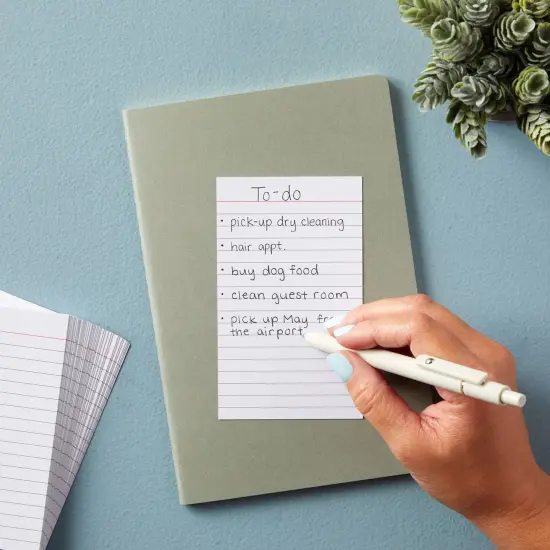 To-do
• pick-up dry cleaning
• hair appt.
• buy dog food
• clean guest room
• pick up May fr
the airport